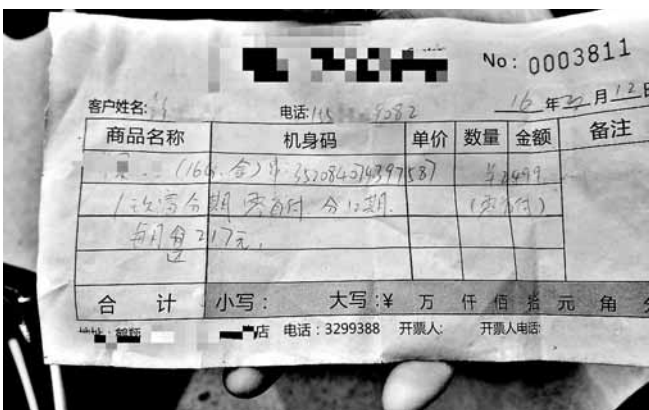 No: 0003811
客户姓名: 电话: 9082 16年 月12日
商品名称 机身码 单价 数量 金额 备注
(16G.金) 352084074397587
分期 零首付. 分12期. (零首付)
每月还217元.
合计 小写: 大写:¥ 万 仟 佰 拾 元 角 分
地址: 鹤翔 店 电话:3299388 开票人: 开票人电话: